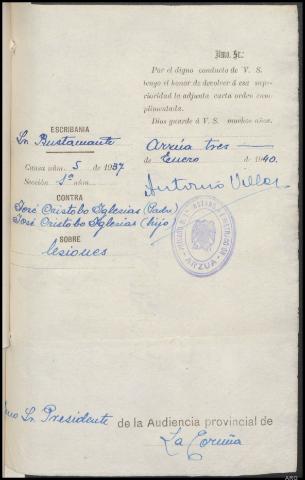 Ilmo. Sr.:
Por el digno conducto de V. S.
tengo el honor de devolver á esa supe-
rioridad la adjunta carta orden cum-
plimentada.
Dios guarde á V. S. muchos años.
Arzúa tres
de Enero de 1940.
Antonio Villar
ESCRIBANIA
Sr. Bustamante
Causa núm. 5 de 1937
Sección 1ª núm.
CONTRA
José Cristobo Iglesias (Padre)
José Cristobo Iglesias (hijo)
SOBRE
lesiones
ARZUA
mo Sr. Presidente de la Audiencia provincial de
La Coruña